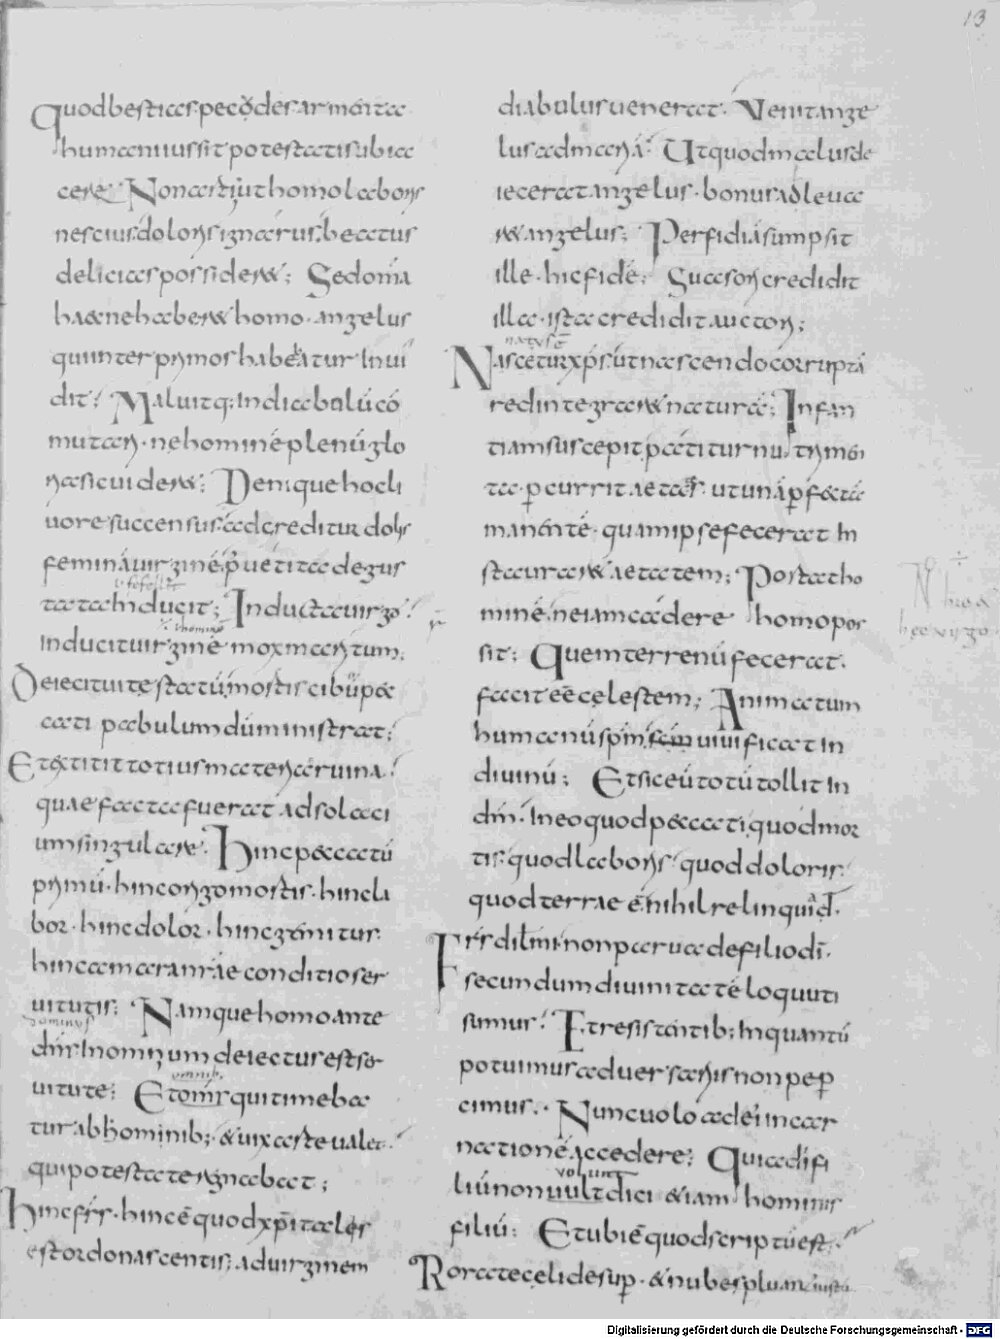 13
Quod bestias pecodes armenta
humani iussit potestatis ubia
cere. Non aestiut homo laboris
nescius doloris ignarus beatus
delicias possidere; Sed omnia
hac ne haberet homo. angelus
qui inter primos habeatur inui
dit; Maluitq; in diabolū cō
mutari. ne hominē plenū glo
ria sic uideret; Denique hoc li
uore succensus. ad creditur dolis
feminā uirginē. ꝑ uetita degus
tata inducit; Inducta uirgo
inducit uirginē mox maritum;
Deiecit uitę statū; mortis cibū pec
cati pabulum dū ministrat;
Et extitit totius materia ruina.
quae facta fuerat ad solaci
um singulare. Hinc peccatū
primū. hinc origo mortis. hinc la
bor. hinc dolor. hinc gemitus.
hinc amara mae conditio ser
uitutis; Namque homo ante
dn̄s Inomnium deiectus est ser
uitute; Et om̄s qui timeba
tur ab hominib; & uix aste ualet.
qui potestate regnabat;
Hinc frs. hinc ē quod xp̄i talis
est ordo nascentis; ad uirginem
diabulus uenerat. Venit ange
lus ad mariā. Ut quod malus de
iecerat angelus. bonus adleua
ret angelus; Perfidiā sumpsit
ille. hic fidē; Suasori credidit
illa. ista credidit auctori;
natus ē
Nascetur xp̄s. ut nascendo corruptā
redintegraret naturā; Infan
tiam suscepit. patitur nutrimen
ta. ꝑcurrit aetates. ut unā ꝑfecta
manentē. quam ipse fecerat In
stauraret aetatem; Portat ho
minē. ne iam cadere homo pos
sit; Quem terrenū fecerat.
facit eē celestem; Animatum
humanū spm̄ suū uiuificat in
diuinū; Et sic eū totū tollit in
dm̄. In eo quod peccati. quod mor
tis. quod laboris. quod doloris.
quod terrae ē. nihil relinquid.
Frs dil̄mi. non parua de filio dī.
secundum diuinitatē loquuti
sumus. Et resistentib; Inquantū
potuimus aduersariis non peper
cimus. Nunc uolo ad eī incar
nationē accedere; Quia dī fi
volunt
liū non uult dici & iam hominis
filiū; Et ubi ē quod scriptū est.
Rorate celi desup. & nubes pluant iustū